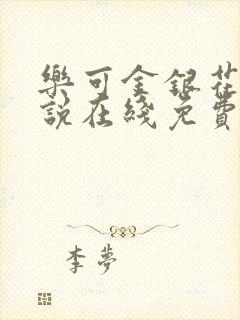 樂可金銀花
說在綫免費
李夢